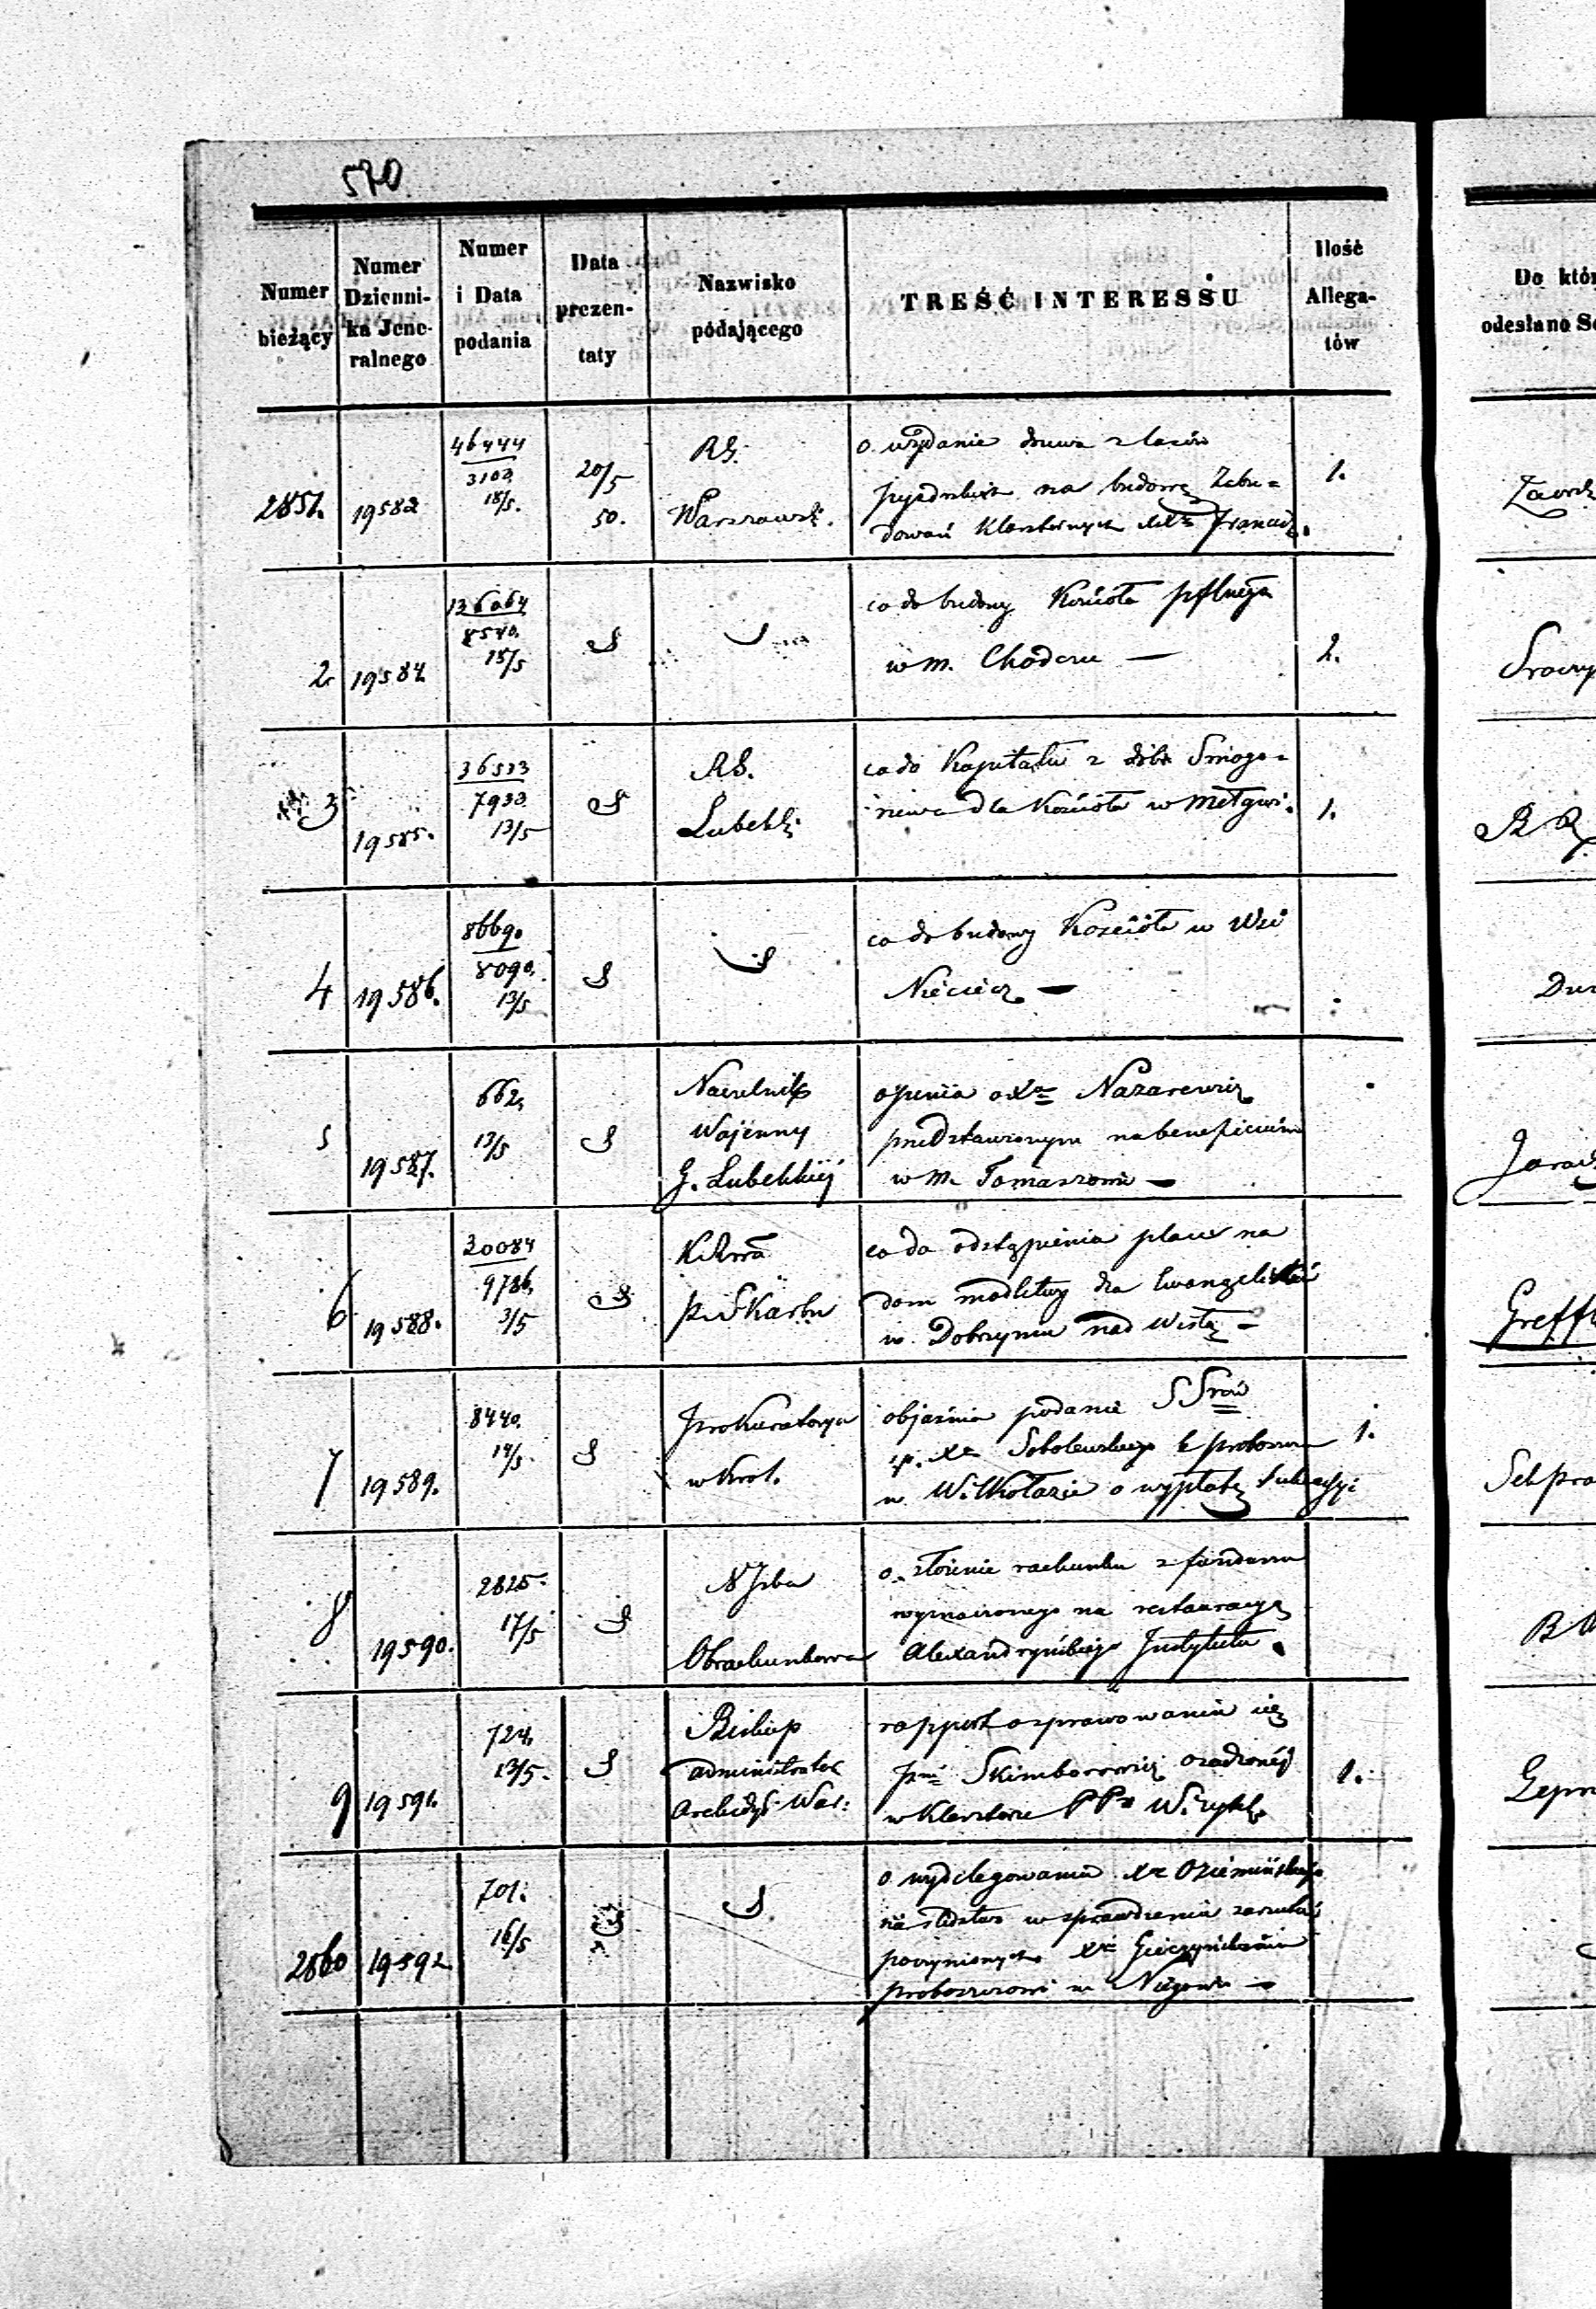 570
Numer bieżący
Numer Dzienni-ka Jene-ralnego
Numer i Data podania
Data prezen-taty
Nazwisko podającego
TREŚĆ INTERESSU
Ilość Allega-tów
Do któr
odesłano Se
2851.
19582
46444
3102
18/5.
20/5
50.
RG.
Warszawski.
o wydanie drzewa z lasów
na budowę Zabu=
dowań Klasztornych XXży Francisz.
1.
2
19584
136064
8540.
18/5
co do budowy Kościoła pflnego
w m. Chodczu —
2.
3
19585.
36533
7933
13/5
RG.
Lubelski
co do Kapitału z dóbr
dla Kościoła w Mełgwi.
1.
R
4
19586.
86690
8090.
13/5
co do budowy Kościoła w Wsi
Nieciecz —
5
19587.
662,
13/5
Naczelnik
Wojenny
G. Lubelskiej
opinia o Xu Nazarewicz
przedstawionym na beneficium
w m. Tomaszowie —
6
19588.
20084
9786,
3/5
KRwa
p. Skarbu
co do odstąpienia placu na
dom modlitwy dla Ewangelików
w Dobrzyniu nad Wisłą —
Greff
7
19589.
8440.
14/5.
Prokuratorya
w Król.
objaśnia podanie SSrów
śp. Xa Sobolewskiego b proboszcza
w Wilkołazie o wypłatę
1.
8
19590.
2825.
17/5
N Izba
Obrachunkowa
o złożenie rachunku z funduszu
wyznaczonego na restauracyą
Alexandryńskiego Instytutu.
9
19591.
724,
13/5.
Biskup
administrator
Archidy: War:
rapport o sprawowaniu się
pni Skimborowicz osadzonej
w Klasztorze PPn Wizytek.
1.
2860
19592
701.
16/5
o wydelegowaniu Xa
na śledztwo w sprawdzeniu zarzutów
poczynionych Xu
proboszczowi w